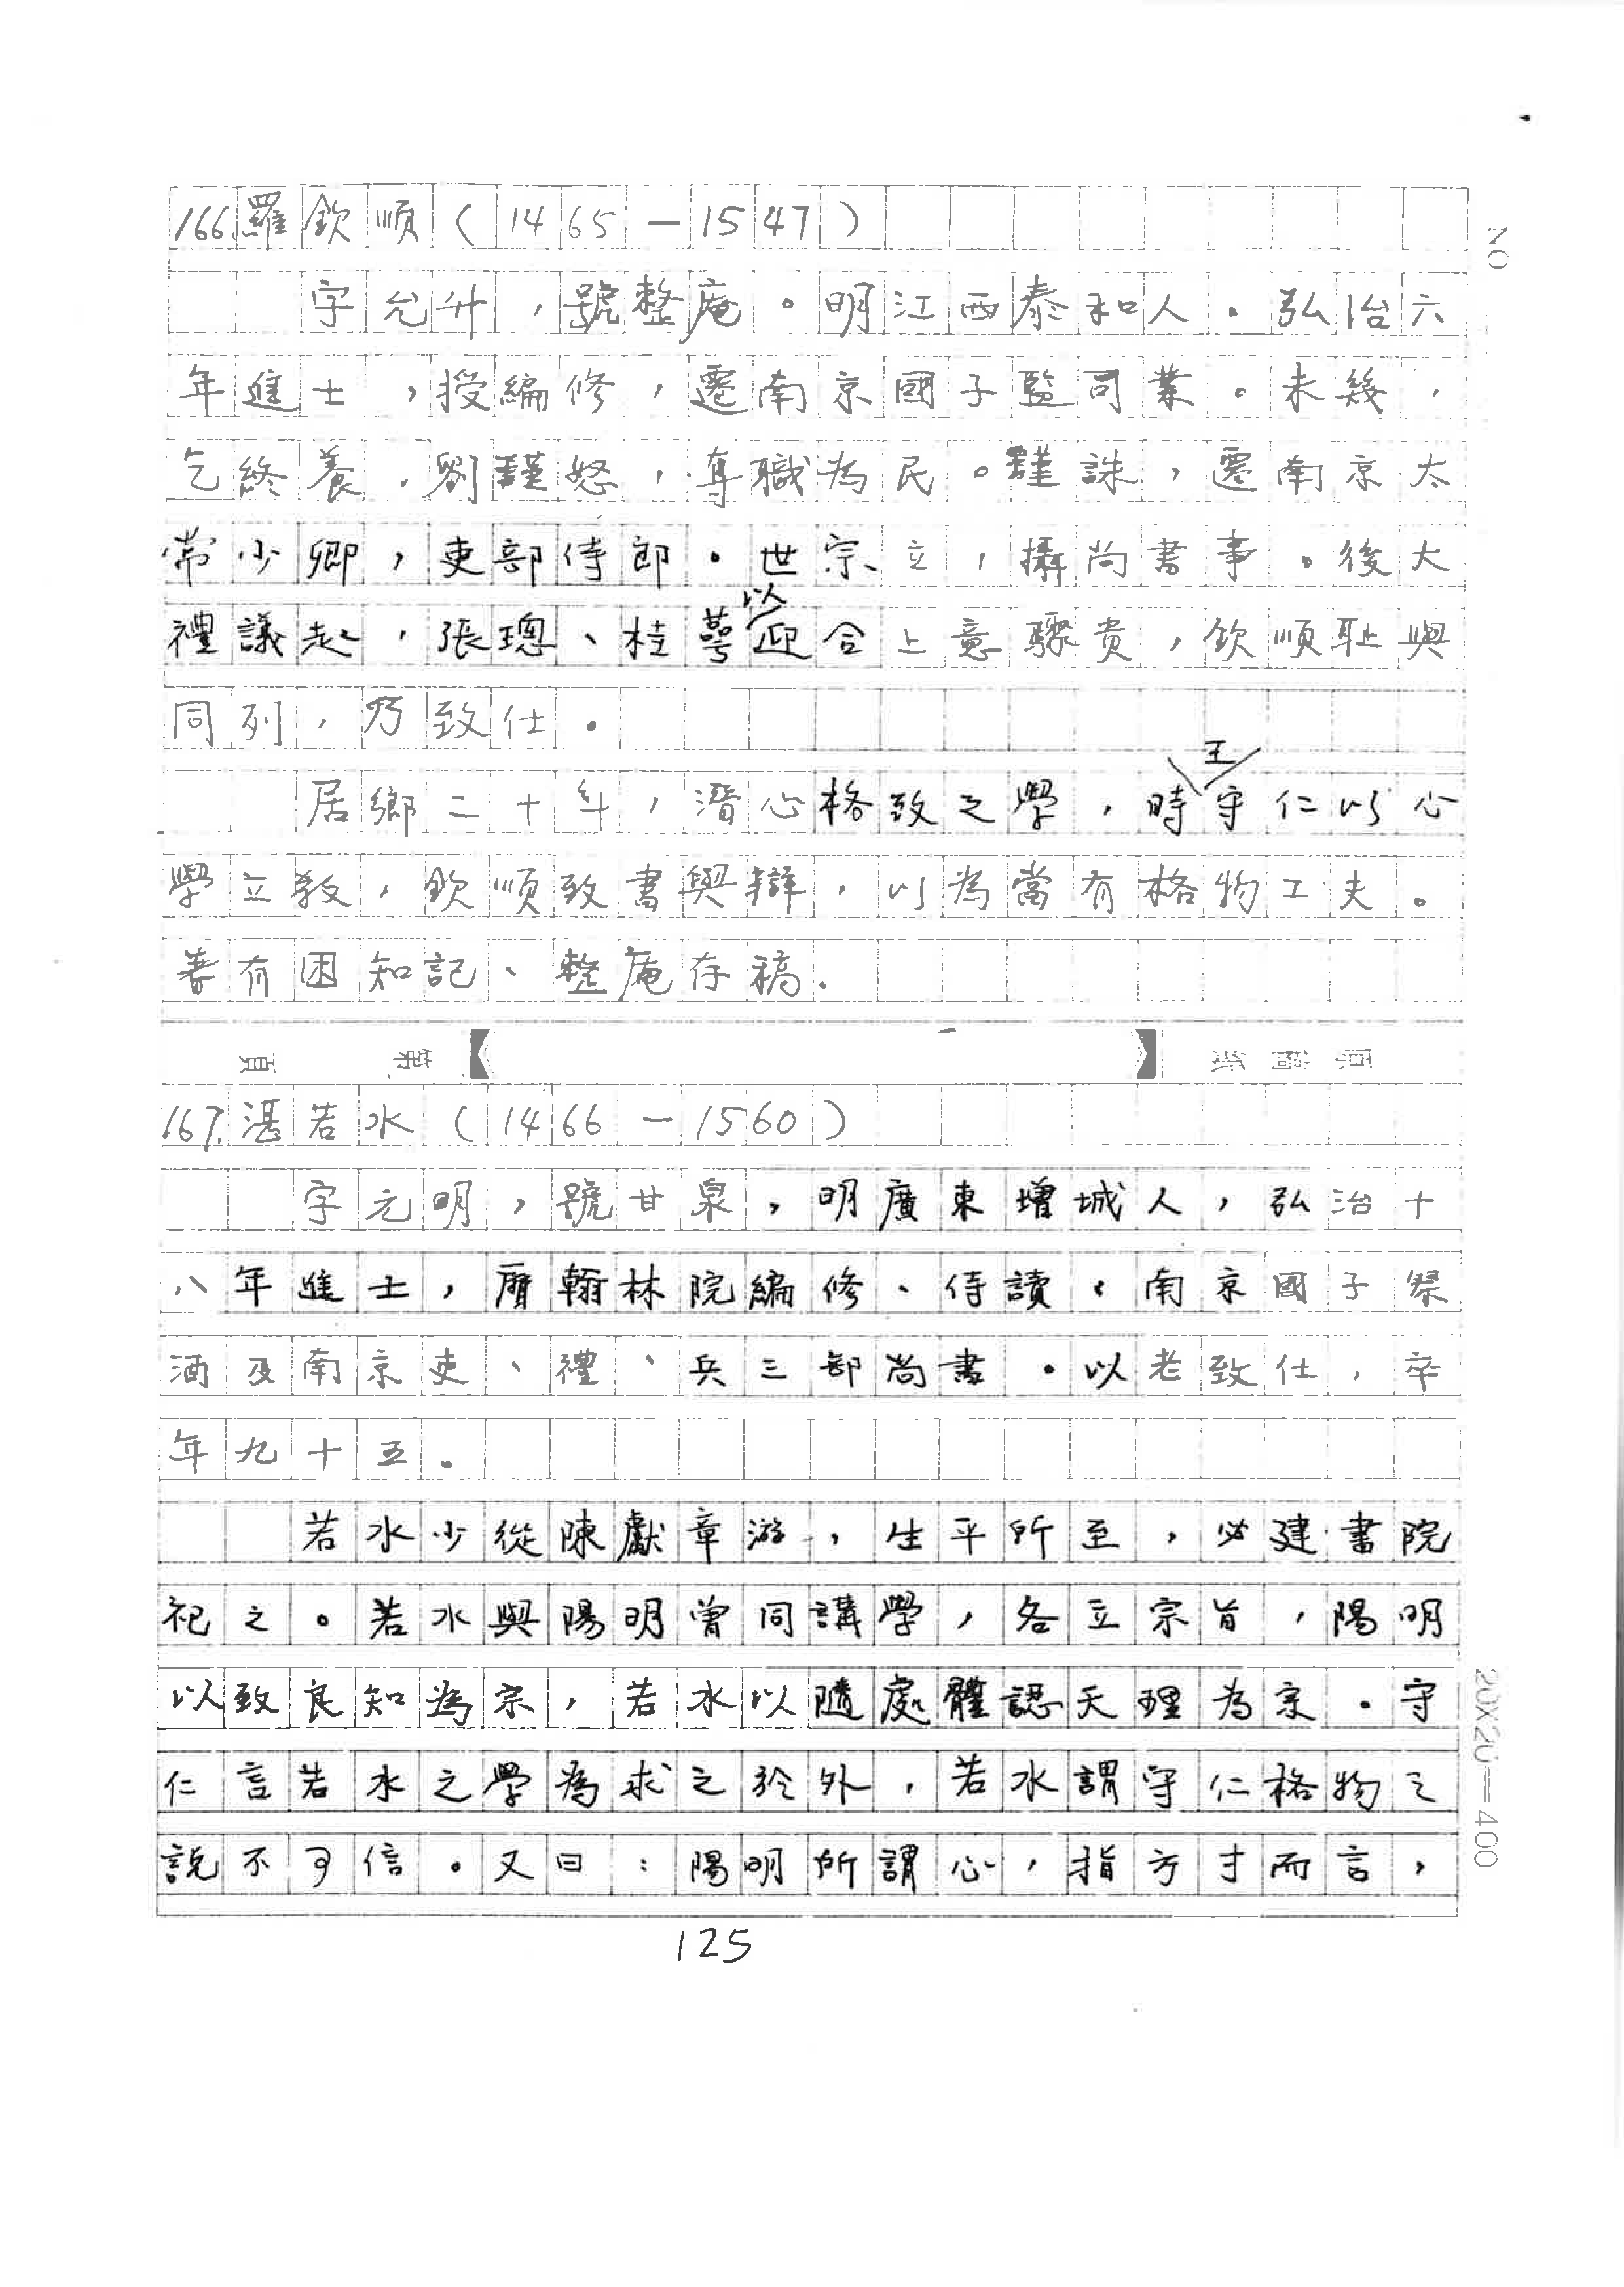 166.羅欽順(1465-1547)
字允升,號整庵。明江西泰和人。弘治六
年進士,授編修,遷南京國子監司業。未幾,
乞終養。劉瑾怒,奪職為民。瑾誅,遷南京太
常少卿,吏部侍郎。世宗立,攝尚書事。後大
禮議起,張璁、桂萼以迎合上意驟貴,欽順恥與
同列,乃致仕。
居鄉二十年,潛心格致之學,時王守仁以心
學立教,欽順致書與辯,以為當有格物工夫。
著有困知記、整庵存稿。
原稿紙
第 頁
167.湛若水(1466-1560)
字元明,號甘泉,明廣東增城人,弘治十
八年進士,歷翰林院編修、侍讀,南京國子祭
酒及南京吏、禮、兵三部尚書。以老致仕,卒
年九十五。
若水少從陳獻章游,生平所至,必建書院
祀之。若水與陽明曾同講學,各立宗旨,陽明
以致良知為宗,若水以隨處體認天理為宗。守
仁言若水之學為求之於外,若水謂守仁格物之
說不可信。又曰:陽明所謂心,指方寸而言,
125
NO
20X20=400